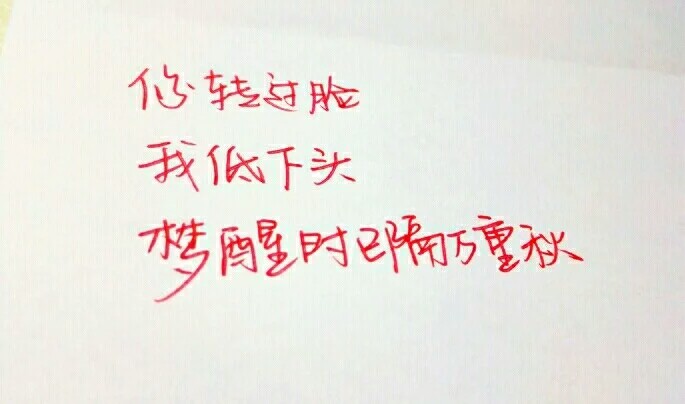 你转过脸
我低下头
梦醒时已隔万重秋